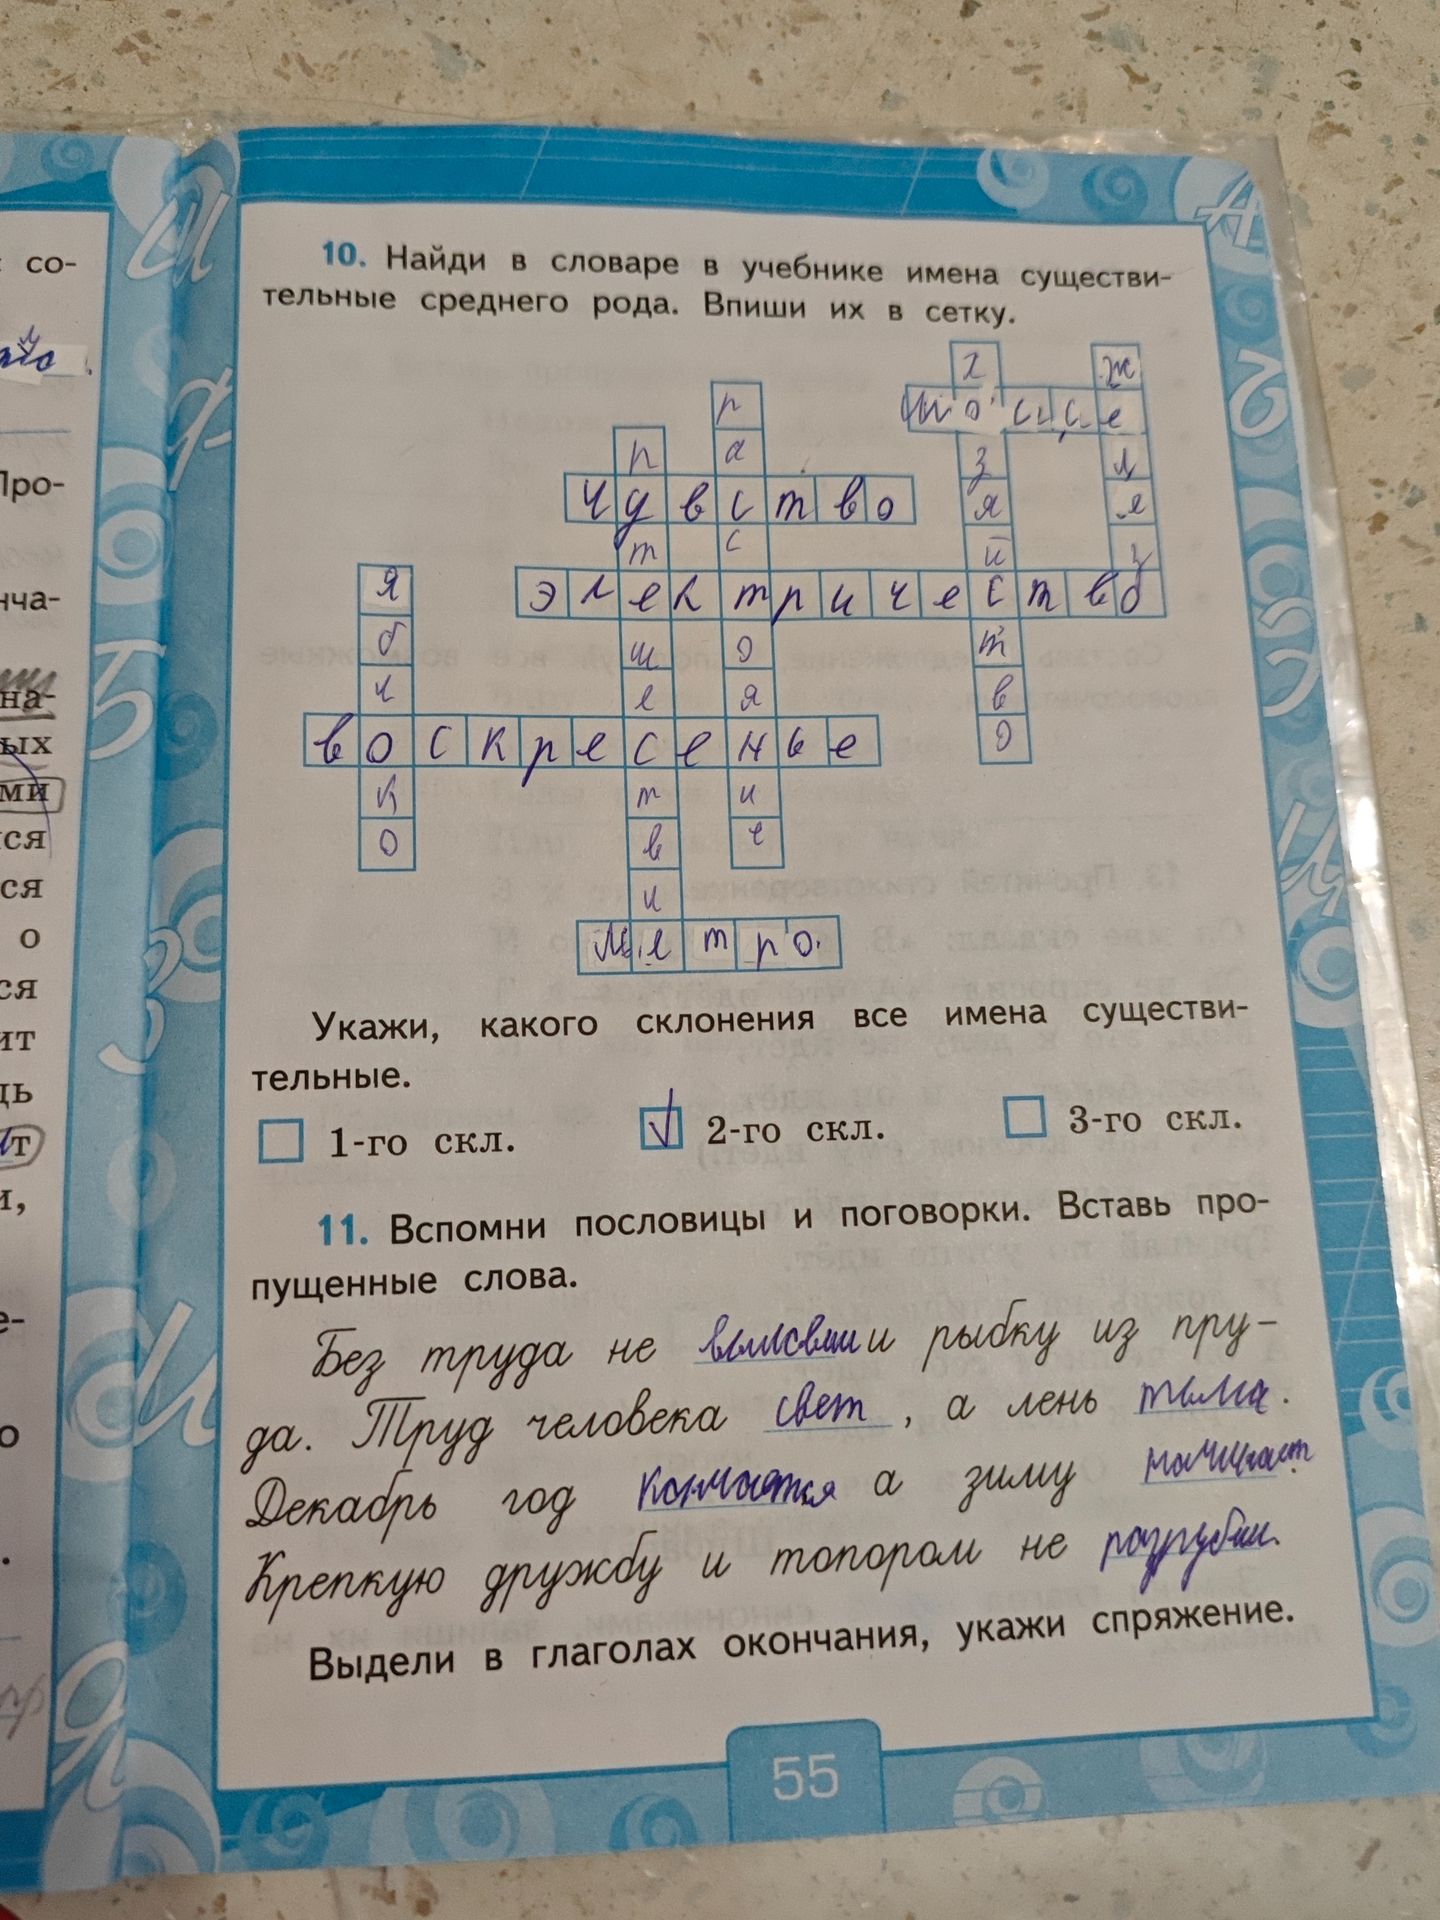 со-
Про-
нча-
на-
ых
ми
ся
о
ся
ит
т
и,
е-
о
10. Найди в словаре в учебнике имена существи-
тельные среднего рода. Впиши их в сетку.
х ж
р шоссе
п а з л
чувство я е
т с й з
я электричество
б ш о т
л е я в
воскресенье о
к т и
о в е
и
метро.
Укажи, какого склонения все имена существи-
тельные.
1-го скл. 2-го скл. 3-го скл.
11. Вспомни пословицы и поговорки. Вставь про-
пущенные слова.
Без труда не выловишь и рыбку из пру-
да. Труд человека свет, а лень тьма.
Декабрь год кончается а зиму начинает
Крепкую дружбу и топором не разрубиш.
Выдели в глаголах окончания, укажи спряжение.
55